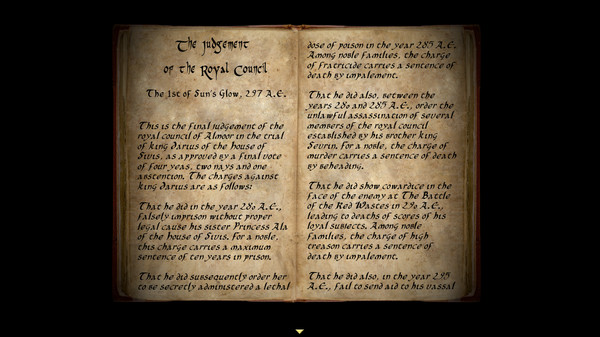 The Judgement
of the Royal Council
The 1st of Sun's Glow, 297 A.E.
This is the final judgement of the
royal council of Almoar in the trial
of king Darius of the house of
Sivis, as approved by a final vote
of four yeas, two nays and one
abstention. The charges against
king Darius are as follows:
That he did in the year 280 A.E.,
falsely imprison without proper
legal cause his sister Princess Ala
of the house of Sivis. For a noble,
this charge carries a maximum
sentence of ten years in prison.
That he did subsequently order her
to be secretly administered a lethal
dose of poison in the year 285 A.E.
Among noble families, the charge
of fratricide carries a sentence of
death by impalement.
That he did also, between the
years 280 and 285 A.E., order the
unlawful assassination of several
members of the royal council
established by his brother king
Sevrin. For a noble, the charge of
murder carries a sentence of death
by beheading.
That he did show cowardice in the
face of the enemy at The Battle
of the Red Wastes in A.E.,
leading to deaths of scores of his
loyal subjects. Among noble
families, the charge of high
treason carries a sentence of
death by impalement.
That he did also, in the year 295
A.E., fail to send aid to his vassal